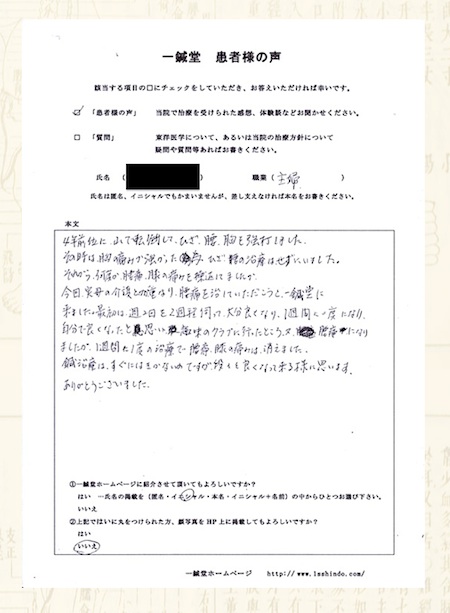 一鍼堂 患者様の声
該当する項目の□にチェックをしていただき、お答えいただければ幸いです。
☑ 「患者様の声」 当院で治療を受けられた感想、体験談などお聞かせください。
□ 「質問」 東洋医学について、あるいは当院の治療方針について
疑問や質問等あればお書きください。
氏名 ( ) 職業 ( 主婦 )
氏名は匿名、イニシャルでもかまいませんが、差し支えなければ本名をお書きください。
本文
4年前位に、山で転倒して、ひざ、腰、胸を強打しました。
その時は、胸の痛みが強かった ひざ、腰の治療はせずにいました。
それから、何度か腰痛、膝の痛みを繰返してましたが、
今回、実母の介護と なり、腰痛を治していただこうと、一鍼堂に
来ました。最初は、週2回を2週程伺って、大分良くなり、1週間に一度になり、
自分で良くなったと思い 趣味のクラブに行ったところ、又、 腰痛になり
ましたが、1週間に1度の治療で腰痛、膝の痛みは、消えました。
鍼治療は、すぐにはきかないのですが、段々と良くなって来る様に思います。
ありがとうございました。
①一鍼堂ホームページに紹介させて頂いてもよろしいですか？
はい …氏名の掲載を（匿名・イニシャル・本名・イニシャル＋名前）の中からひとつお選び下さい。
いいえ
②上記ではいに丸をつけられた方、顔写真をHP上に掲載してもよろしいですか？
はい
いいえ
一鍼堂ホームページ http://www.1sshindo.com/